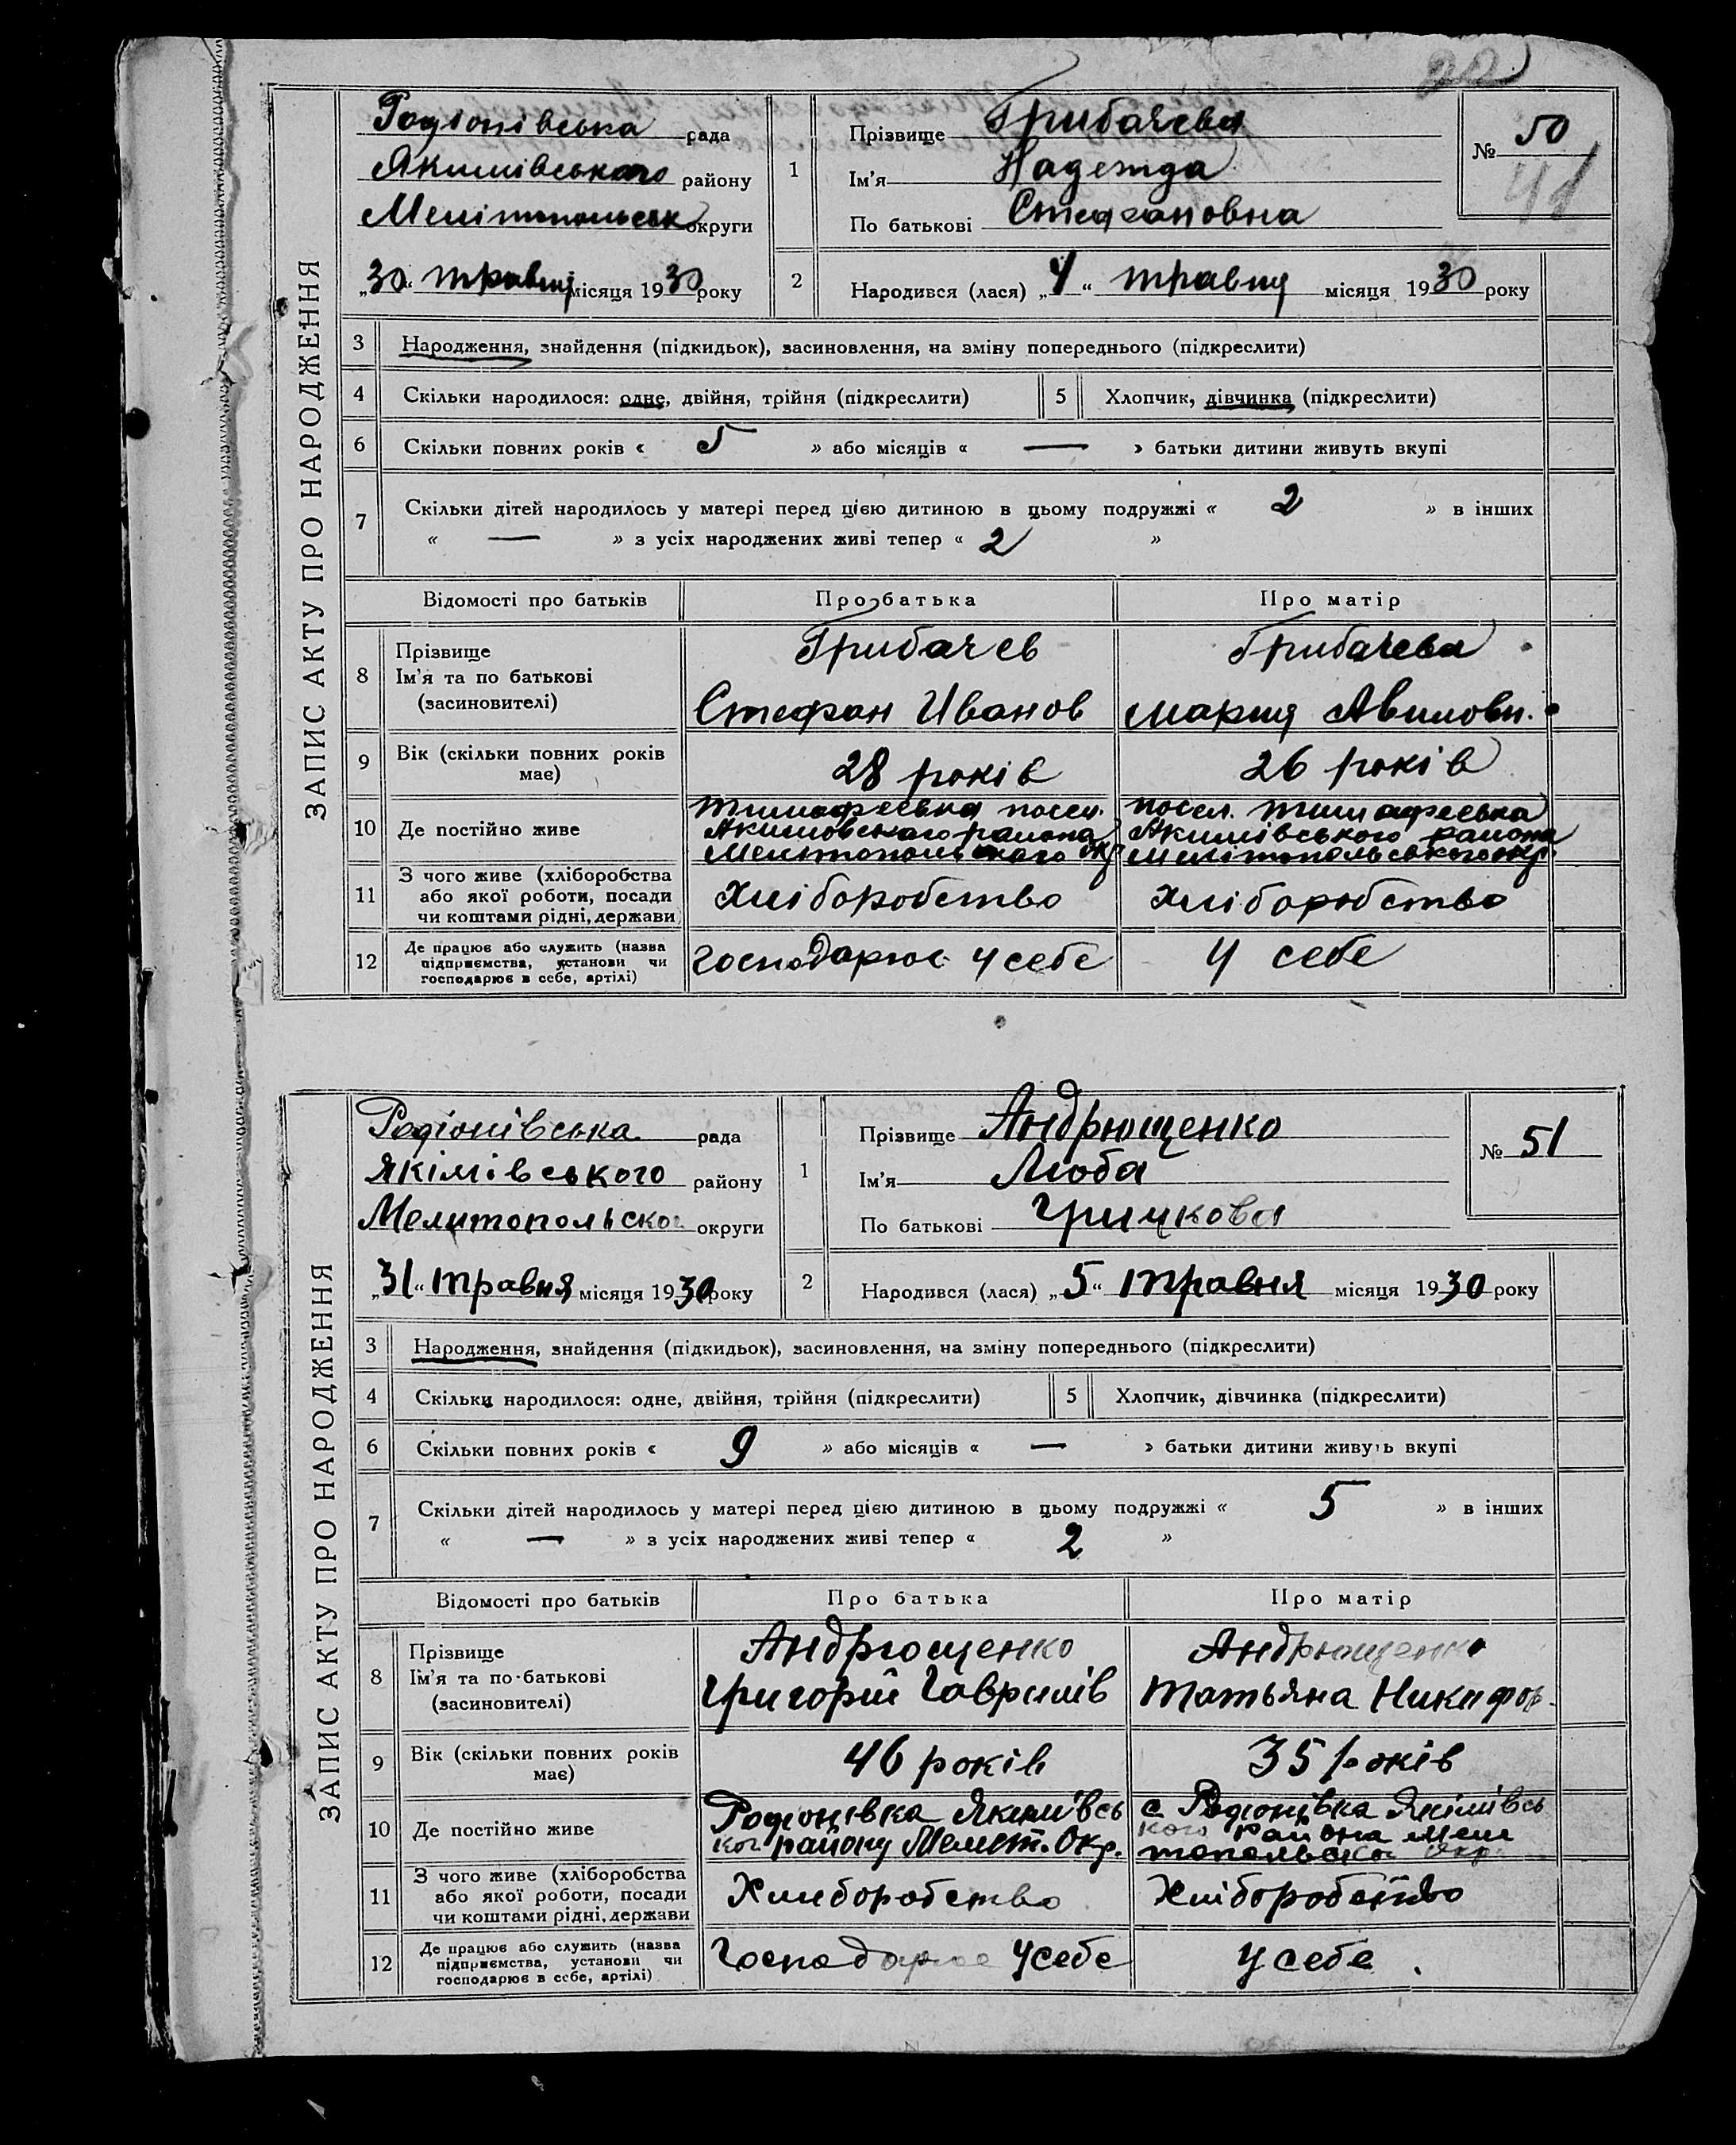 22
ЗАПИС АКТУ ПРО НАРОДЖЕННЯ
Родіонівська рада
Якимівського району
Мелітопольськ округи
„30“ травня місяця 1930 року
1 Прізвище Грибачева
Ім'я Надежда
По батькові Стефановна
№ 50
41
2 Народився (лася) „4“ травня місяця 1930 року
3 Народження, знайдення (підкидьок), засиновлення, на зміну попереднього (підкреслити)
4 Скільки народилося: одне, двійня, трійня (підкреслити) 5 Хлопчик, дівчинка (підкреслити)
6 Скільки повних років « 5 » або місяців « — » батьки дитини живуть вкупі
7 Скільки дітей народилось у матері перед цією дитиною в цьому подружжі « 2 » в інших
« — » з усіх народжених живі тепер « 2 »
Відомості про батьків Про батька Про матір
8 Прізвище
Ім'я та по батькові
(засиновителі)
Грибачев
Стефан Иванов
Грибачева
Мария Авиловн.
9 Вік (скільки повних років
має)
28 років
26 років
10 Де постійно живе
Тимофеевка посел.
Акимовского района
Мелитопольского окр
посел. Тимофеевка
Акимівського района
Мелітопольського окр.
11 З чого живе (хліборобства
або якої роботи, посади
чи коштами рідні, держави
Хліборобство
Хліборобство
12 Де працює або служить (назва
підприємства, установи чи
господарює в себе, артілі)
Господарює у себе
У себе
ЗАПИС АКТУ ПРО НАРОДЖЕННЯ
Родіонівська рада
Якімівського району
Мелитопольског округи
„31“ травня місяця 1930 року
1 Прізвище Андрющенко
Ім'я Люба
По батькові Грицкова
№ 51
2 Народився (лася) „5“ травня місяця 1930 року
3 Народження, знайдення (підкидьок), засиновлення, на зміну попереднього (підкреслити)
4 Скільки народилося: одне, двійня, трійня (підкреслити) 5 Хлопчик, дівчинка (підкреслити)
6 Скільки повних років « 9 » або місяців « — » батьки дитини живуть вкупі
7 Скільки дітей народилось у матері перед цією дитиною в цьому подружжі « 5 » в інших
« — » з усіх народжених живі тепер « 2 »
Відомості про батьків Про батька Про матір
8 Прізвище
Ім'я та по-батькові
(засиновителі)
Андрющенко
Григорій Гаврилів
Андрющенко
Татьяна Никифор.
9 Вік (скільки повних років
має)
46 років
35 років
10 Де постійно живе
Родіонівка Якимівсь
ког району Мелит. Окр.
с Родіонівка Якімівсь
кого района Мели
топольськог Окр.
11 З чого живе (хліборобства
або якої роботи, посади
чи коштами рідні, держави
Хлиборобство
Хліборобство
12 Де працює або служить (назва
підприємства, установи чи
господарює в себе, артілі)
Господарює у себе
у себе.